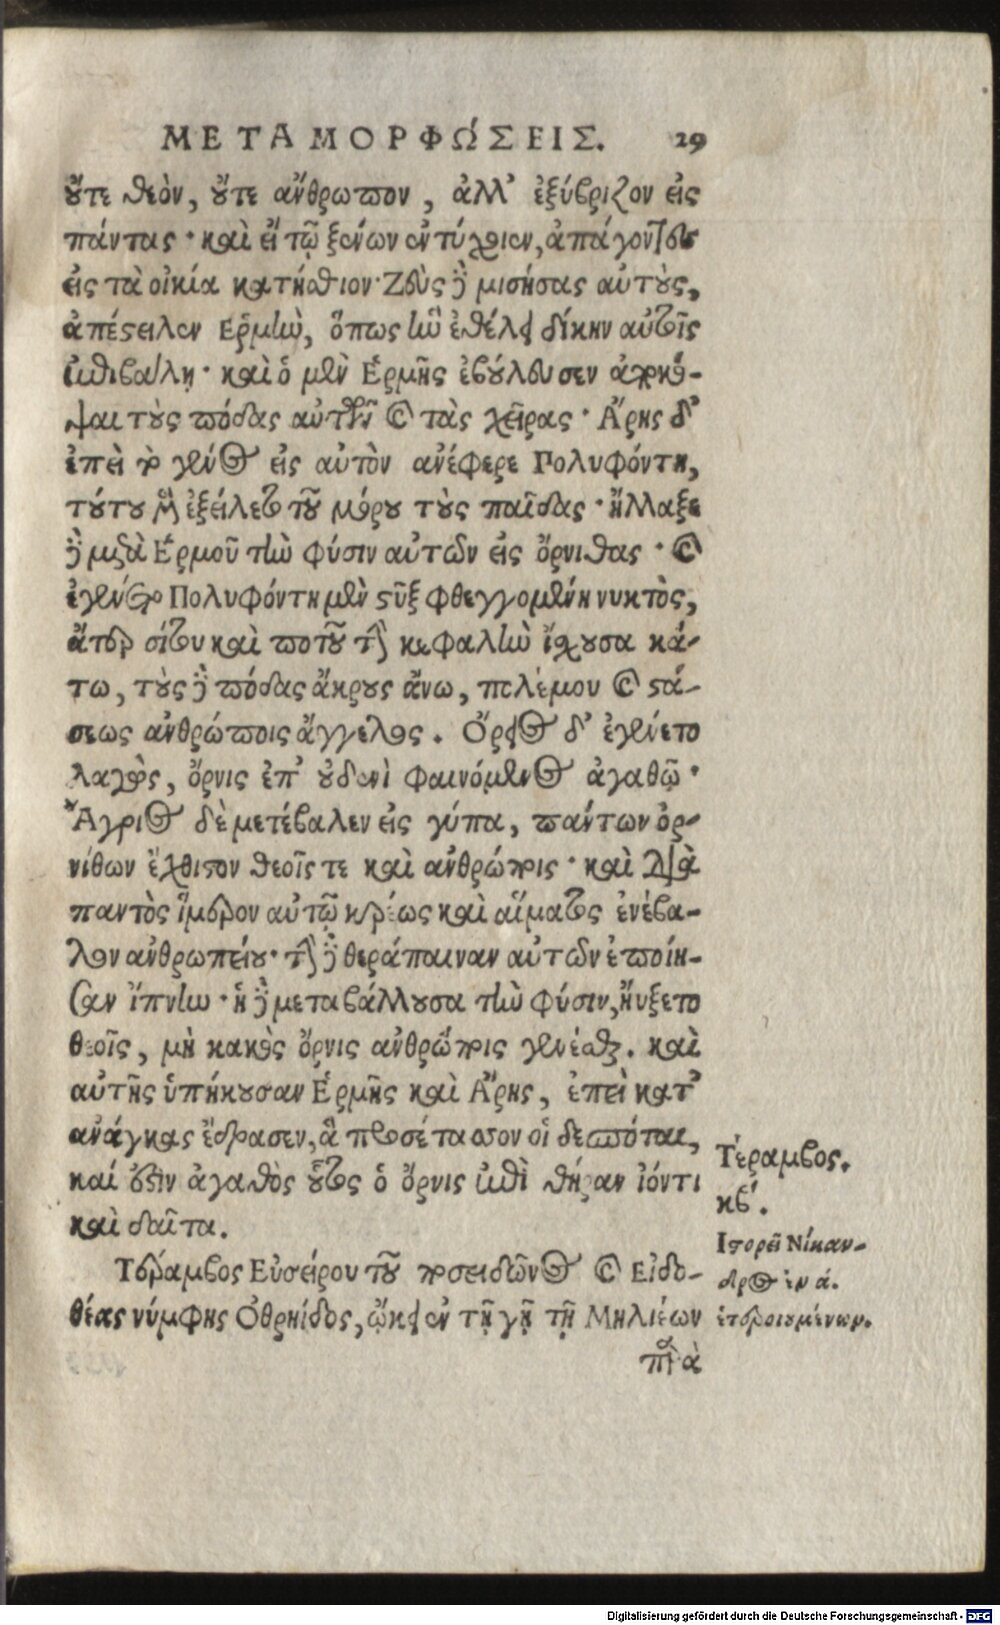 ΜΕΤΑΜΟΡΦΏΣΕΙΣ. 29
οὔτε θεὸν, οὔτε ἄνθρωπον, ἀλλ' ἐξύβριζον εἰς
πάντας· καὶ εἴ τῳ ξένων ἐντύχοιεν, ἀπάγοντες
εἰς τὰ οἰκία κατήσθιον· Ζεὺς δὲ μισήσας αὐτοὺς,
ἀπέστειλεν Ερμῆν, ὅπως ἣν ἐθέλει δίκην αὐτοῖς
ἐπιβάλῃ· καὶ ὁ μὲν Ἑρμῆς ἐβούλευσεν ἀποκό-
ψαι τοὺς πόδας αὐτῶν καὶ τὰς χεῖρας· Ἄρης δ'
ἐπεὶ τὸ γένος εἰς αὐτὸν ἀνέφερε Πολυφόντη,
τούτου μὲν ἐξείλετο τοῦ μόρου τοὺς παῖδας· ἤλλαξε
δὲ μετὰ Ἑρμοῦ τὴν φύσιν αὐτῶν εἰς ὄρνιθας· καὶ
ἐγένετο Πολυφόντη μὲν στὺξ φθεγγομένη νυκτὸς,
ἄτερ σίτου καὶ ποτοῦ τὴν κεφαλὴν ἴχουσα κά-
τω, τοὺς δὲ πόδας ἄκρους ἄνω, πολέμου καὶ στά-
σεως ἀνθρώποις ἄγγελος. Ὄρειος δ' ἐγένετο
λαγῶς, ὄρνις ἐπ' οὐδενὶ φαινόμενος ἀγαθῷ·
Ἄγριος δὲ μετέβαλεν εἰς γύπα, πάντων ὀρ-
νίθων ἔχθιστον θεοῖς τε καὶ ἀνθρώποις· καὶ διὰ
παντὸς ἵμερον αὐτῷ κρέως καὶ αἵματος ἐνέβα-
λον ἀνθρωπείου· τὴν δὲ θεράπαιναν αὐτῶν ἐποίη-
σαν ἴπνην· ἡ δὲ μεταβάλλουσα τὴν φύσιν, ηὔξετο
θεοῖς, μὴ κακὸς ὄρνις ἀνθρώποις γενέσθαι. καὶ
αὐτῆς ὑπήκουσαν Ἑρμῆς καὶ Ἄρης, ἐπεὶ κατ'
ἀνάγκας ἔδρασεν, ἃ προσέτασσον οἱ δεσπόται,
καί ἐστιν ἀγαθὸς οὗτος ὁ ὄρνις ἐπὶ θήραν ἰόντι
καὶ δαῖτα.
Τέραμβος.
κβ'.
Τέραμβος Εὐσείρου τοῦ ποσειδῶνος καὶ Εἰδο-
θέας νύμφης Ὀθρηΐδος, ᾤκει ἐν τῇ γῇ τῇ Μηλιέων
Ἱστορεῖ Νίκαν-
δρος ἐν ά.
ἑτεροιουμένων.
παρὰ
Digitalisierung gefördert durch die Deutsche Forschungsgemeinschaft - DFG